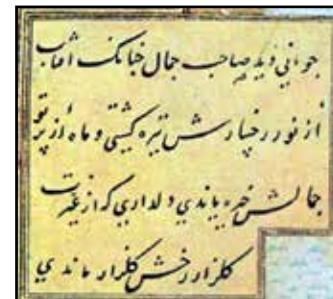 جوانی دید صاحب جمال چنانک آفتاب
از نور رخسارش تیره گشتی و ماه از پرتو
جمالش خیره بماندی دلداری که از غیرت
گلزار رخش گلزار ماندی